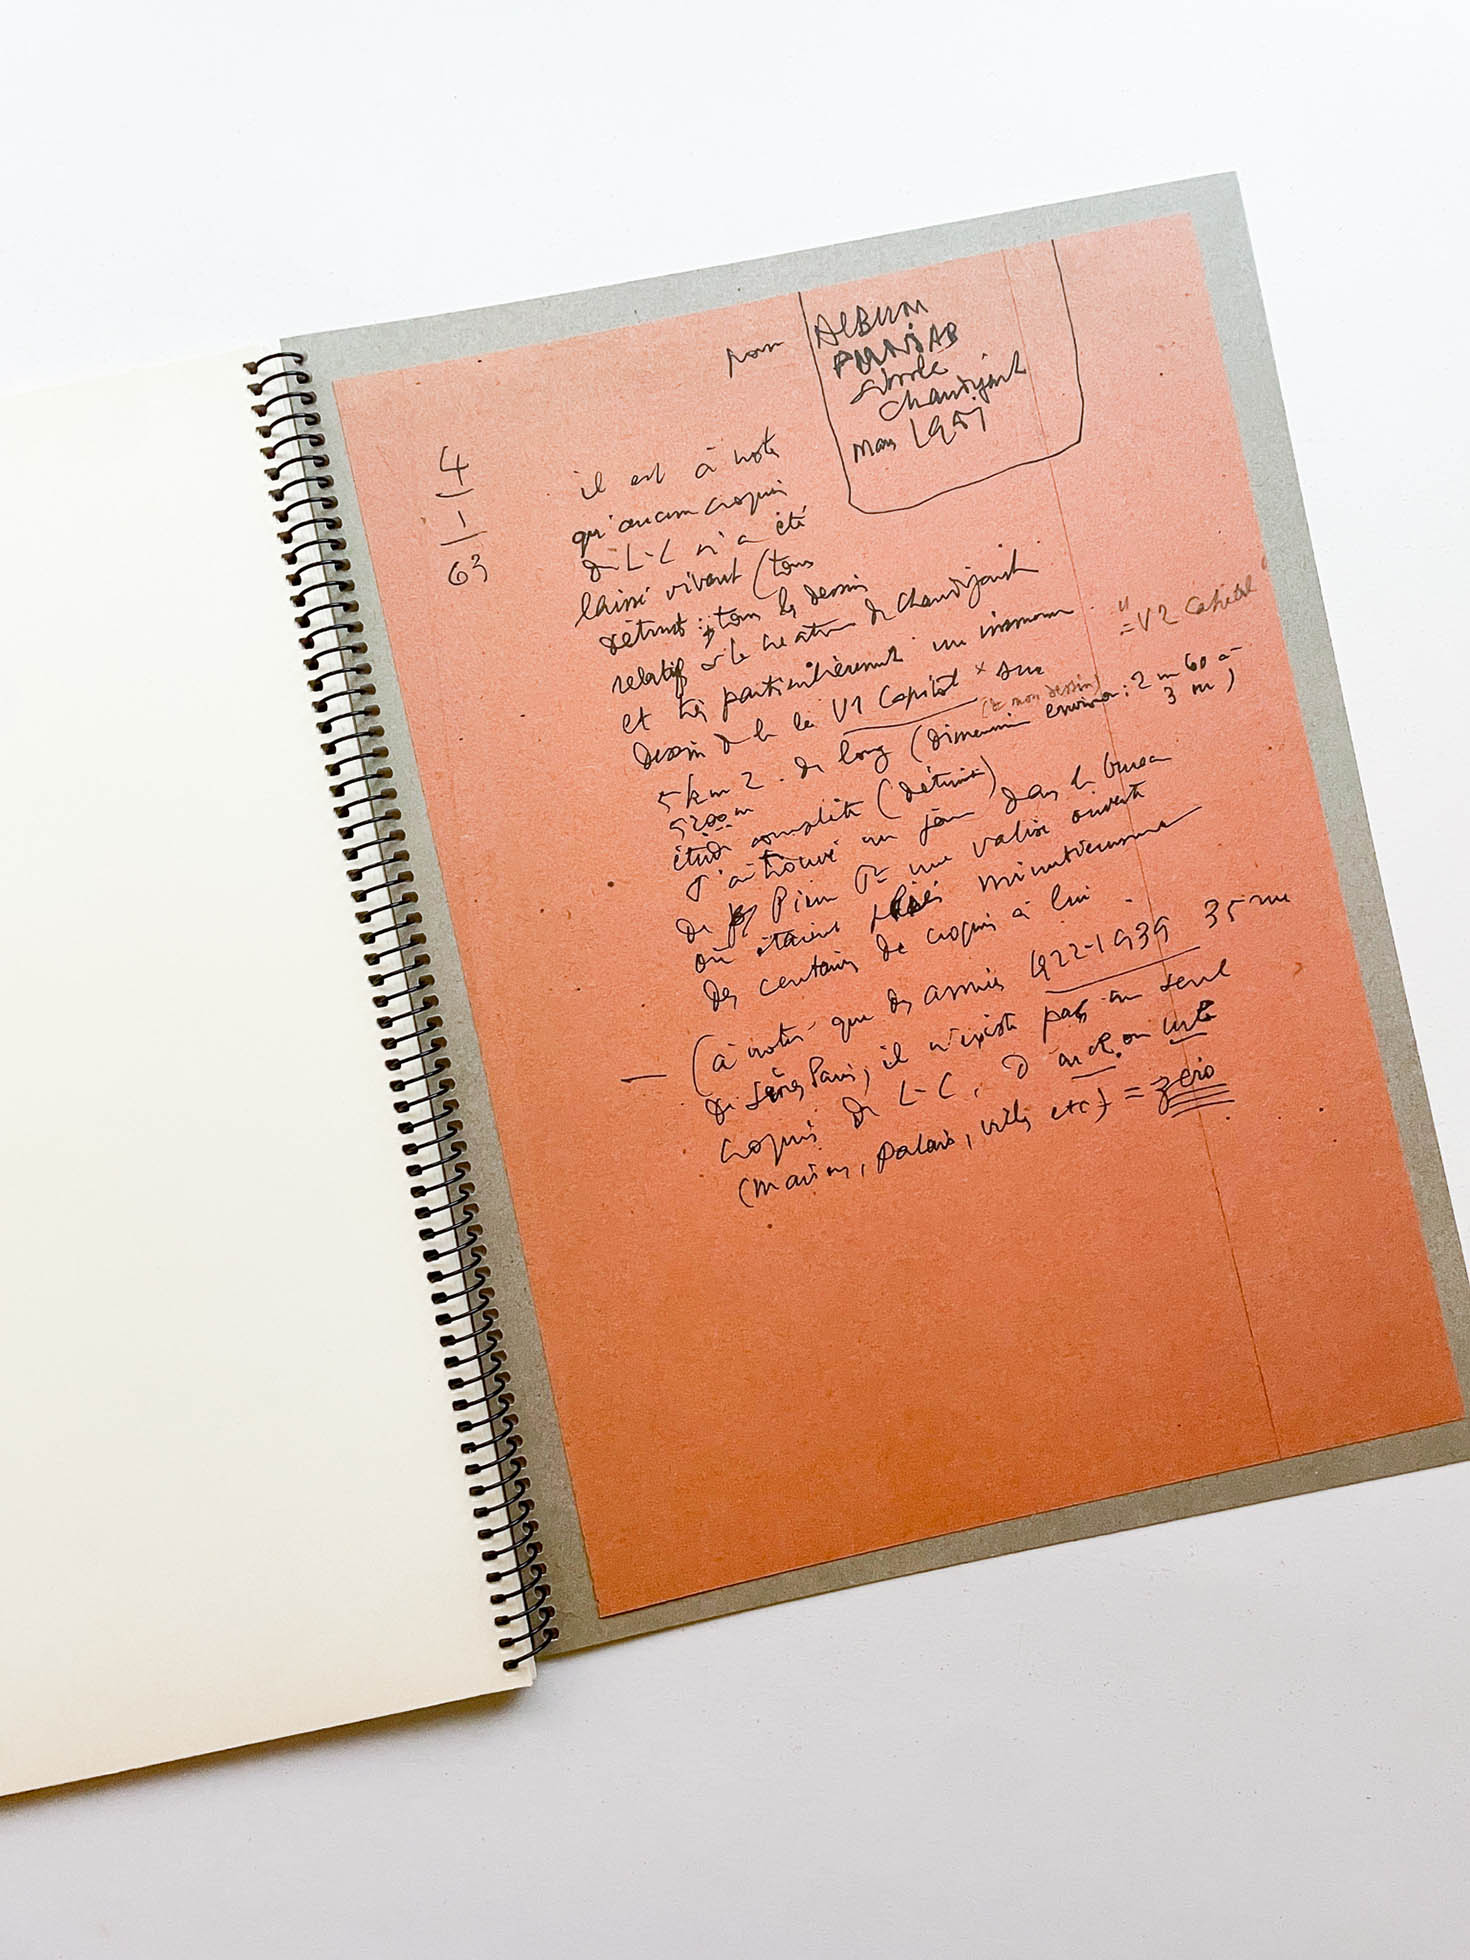 pour
ALBUM
PUNJAB
Simla
Chandigarh
Mars 1951
4
1
63
il est à noter
qu'aucun croquis
de L-C n'a été
laissé vivant (tous
détruits: tous les dessins
relatifs à la création de Chandigarh
et très particulièrement un immense
"= V2 Capitol"
dessin de la V1 Capitol × sur
(le mon dessin)
5 km 2. de long (dimension environ: 2 m 60 à
5200 m
3 m)
étude complète (détruite)
J'ai trouvé un jour dans le bureau
de Pierre une valise ouverte
où étaient minutieusement
des centaines de croquis à lui
— (à noter que des années 1922-1939 35 rue
de Sèvres Paris, il n'existe pas un seul
croquis de L-C, d'arch. ou urb.
(maisons, palais, villes etc) = zéro